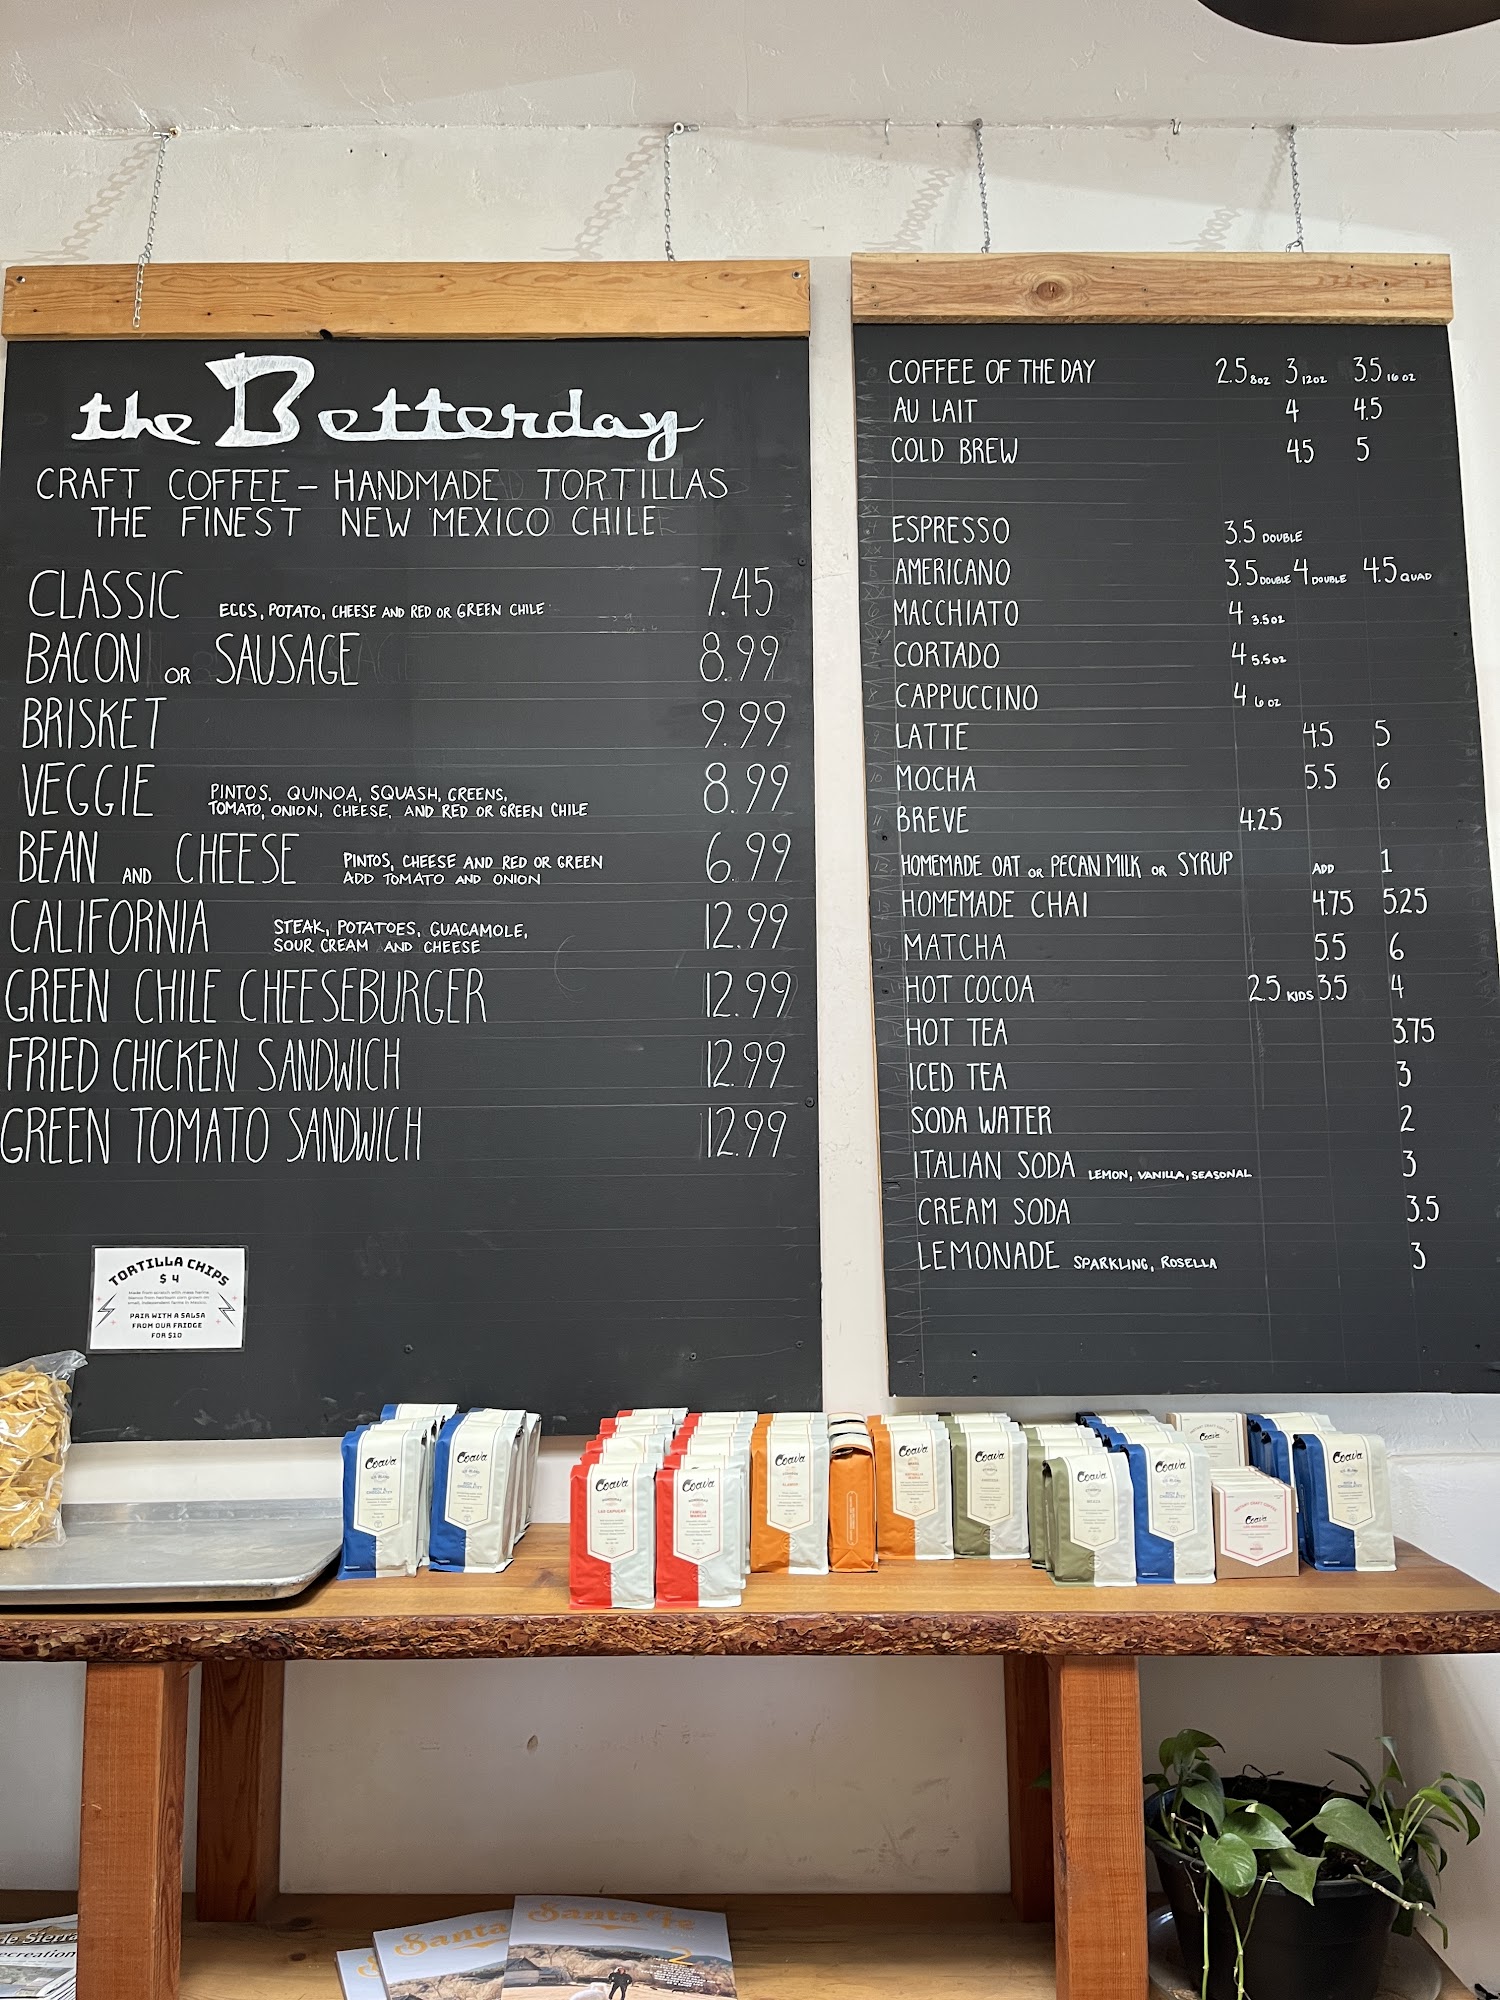 the Betterday
CRAFT COFFEE - HANDMADE TORTILLAS
THE FINEST NEW MEXICO CHILE
CLASSIC EGGS, POTATO, CHEESE AND RED OR GREEN CHILE 7.45
BACON OR SAUSAGE 8.99
BRISKET 9.99
VEGGIE PINTOS, QUINOA, SQUASH, GREENS, 8.99
TOMATO, ONION, CHEESE, AND RED OR GREEN CHILE
BEAN AND CHEESE PINTOS, CHEESE AND RED OR GREEN 6.99
ADD TOMATO AND ONION
CALIFORNIA STEAK, POTATOES, GUACAMOLE, 12.99
SOUR CREAM AND CHEESE
GREEN CHILE CHEESEBURGER 12.99
FRIED CHICKEN SANDWICH 12.99
GREEN TOMATO SANDWICH 12.99
TORTILLA CHIPS
$4
PAIR WITH A SALSA
FROM OUR FRIDGE
FOR $10
COFFEE OF THE DAY 2.5 8oz 3 12oz 3.5 16 oz
AU LAIT 4 4.5
COLD BREW 4.5 5
ESPRESSO 3.5 DOUBLE
AMERICANO 3.5 DOUBLE 4 DOUBLE 4.5 QUAD
MACCHIATO 4 3.5oz
CORTADO 4 5.5oz
CAPPUCCINO 4 6 oz
LATTE 4.5 5
MOCHA 5.5 6
BREVE 4.25
HOMEMADE OAT OR PECAN MILK OR SYRUP ADD 1
HOMEMADE CHAI 4.75 5.25
MATCHA 5.5 6
HOT COCOA 2.5 KIDS 3.5 4
HOT TEA 3.75
ICED TEA 3
SODA WATER 2
ITALIAN SODA LEMON, VANILLA, SEASONAL 3
CREAM SODA 3.5
LEMONADE SPARKLING, ROSELLA 3
Coava
Coava
Coava
HONDURAS
LAS CAPUCAS
Coava
HONDURAS
FAMILIA
Coava
Coava
Coava
Coava
Coava
Coava
Coava
Coava
Santa Fe
Santa